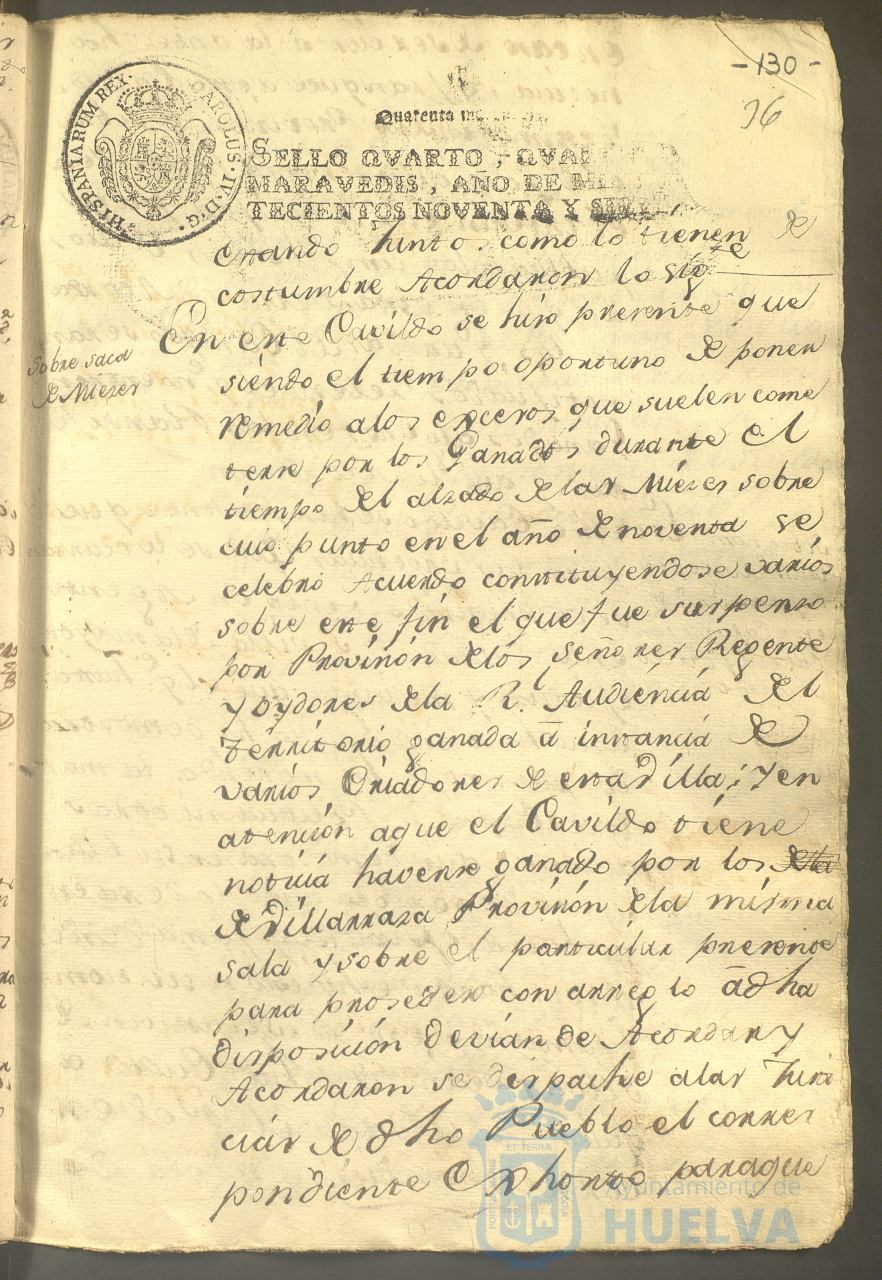 -130-
36
HISPANIARUM REX. CAROLUS·IV·D·G·
Quarenta
SELLO QVARTO, QVAR
MARAVEDIS, AÑO DE MIL
TECIENTOS NOVENTA Y SIE
estando Juntos como lo tienen de
costumbre Acordaron lo sigte
Sobre saca
de Miezes
En este Cavildo se hizo presente que
siendo el tiempo oportuno de poner
remedio alos excesos que suelen come
terse por los Ganados durante el
tiempo del alzado delas Miezes sobre
cuio punto en el año de noventa se
celebró Acuerdo constituyendose varios
sobre este fin el que fue suspenso
por Provision delos Señores Regente
y oydores dela Rl. Audiencia del
Territorio ganada ā instancia de
varios Criadores de esta villa; y en
atencion aque el Cavildo tiene
noticia haverse ganado por los dela
de Villarrasa Provision dela misma
sala y sobre el particular presente
para proseder con arreglo ā dha
disposicion devian de Acordar y
Acordaron se despache alas Justi
cias de dho Pueblo el corres
pondiente Exhorto paraque
ET TERRÆ
PORTUS MARIS
CUSTODIA
Ayuntamiento de
HUELVA